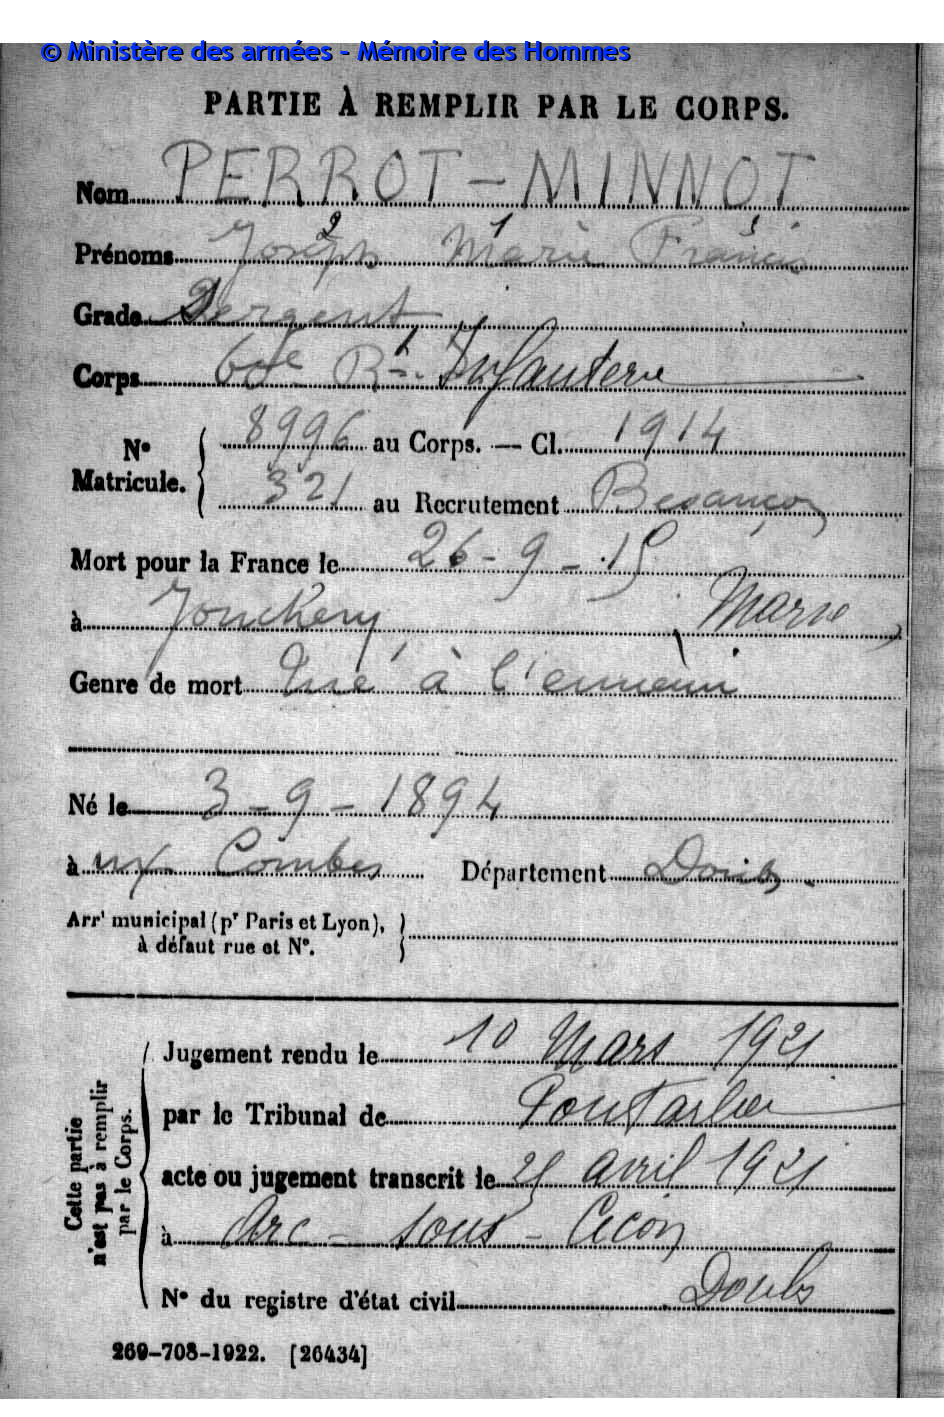 © Ministère des armées - Mémoire des Hommes
PARTIE À REMPLIR PAR LE CORPS.
Nom PERROT - MINNOT
2 1 3
Prénoms Joseph Marie Francis
Grade Sergent
Corps 60e Rt. Infanterie
No Matricule. { 8996 au Corps. — Cl. 1914
321 au Recrutement Besançon
Mort pour la France le 26 - 9 - 15
à Jonchery, (Marne)
Genre de mort tué à l'ennemi
Né le 3 - 9 - 1894
à ux Combes Département Doubs.
Arrt municipal (pr Paris et Lyon), à défaut rue et No. }
Cette partie n'est pas à remplir par le Corps.
Jugement rendu le 10 Mars 1921
par le Tribunal de Pontarlier
acte ou jugement transcrit le 25 avril 1921
à Arc - sous - Cicon
No du registre d'état civil Doubs
269-708-1922. [26434]